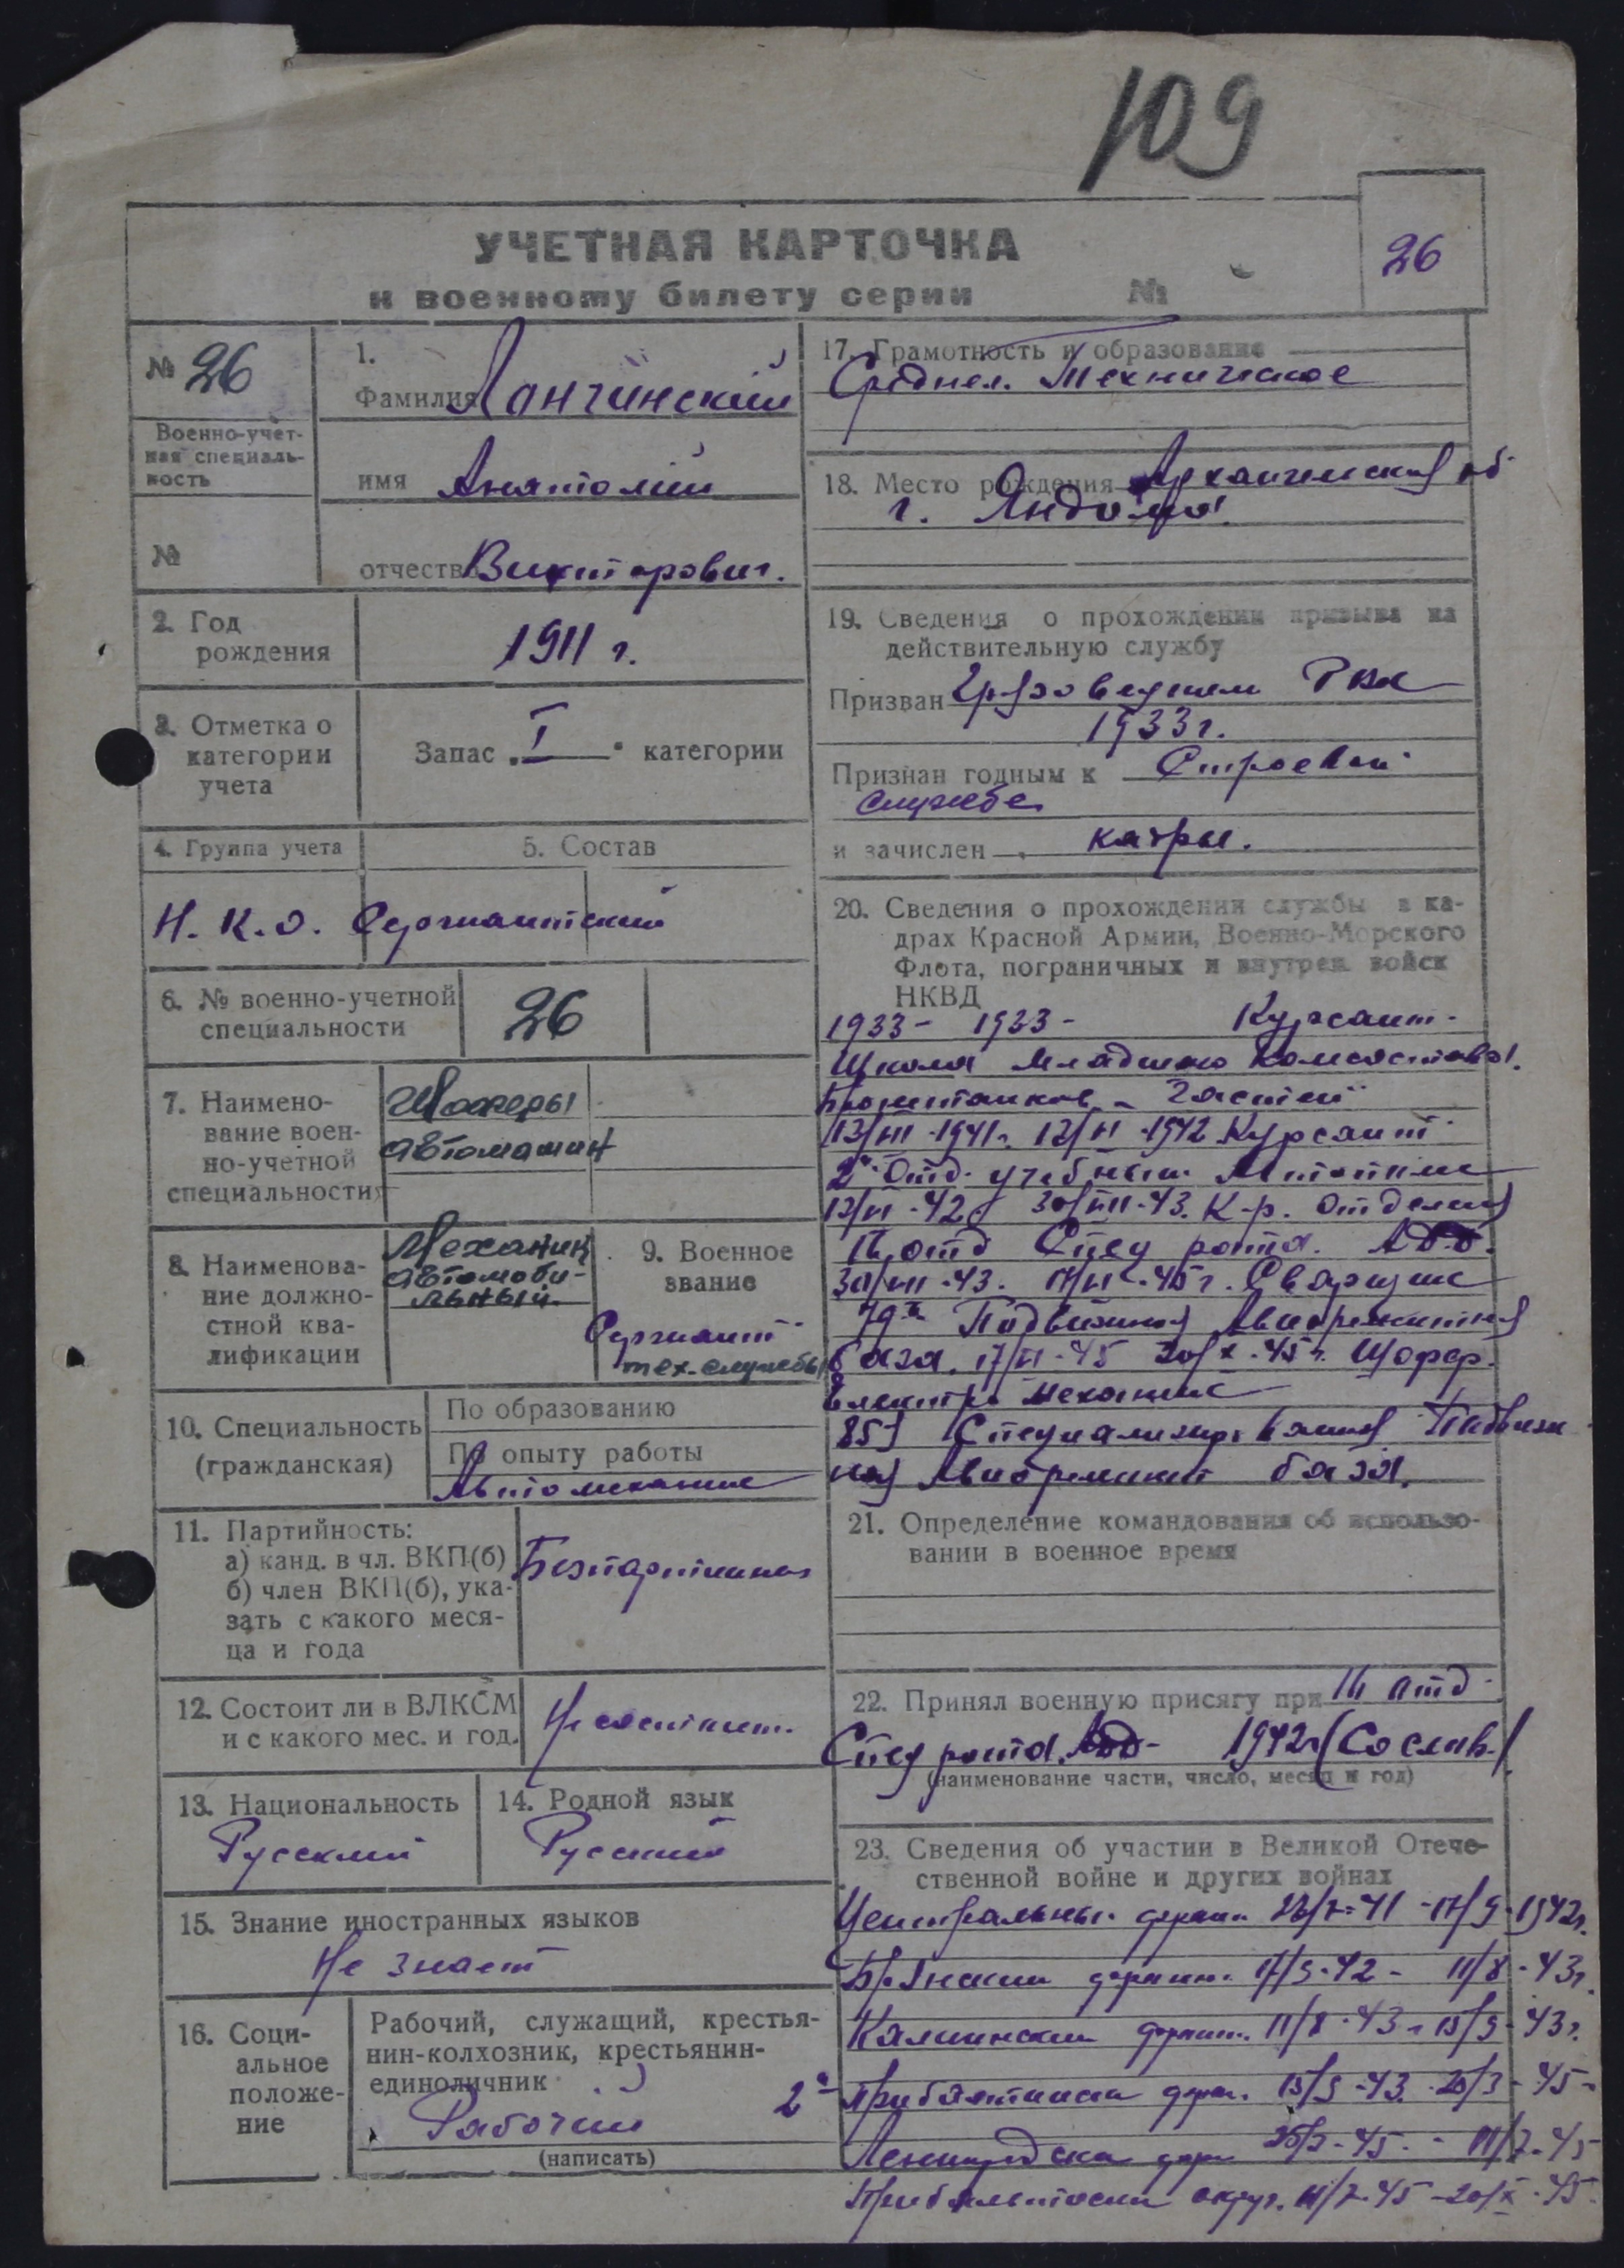 109
УЧЕТНАЯ КАРТОЧКА
к военному билету серии №
26
№ 26
Военно-учет-
ная специаль-
ность
№
1.
Фамилия Лончинский
имя Анатолий
отчество Викторович.
2. Год
рождения
1911 г.
3. Отметка о
категории
учета
Запас I категории
4. Группа учета
5. Состав
Н. К. О. Сержантский
6. № военно-учетной
специальности
26
7. Наимено-
вание воен-
но-учетной
специальности
Шоферы
автомашин
8. Наименова-
ние должно-
стной ква-
лификации
Механик
автомоби-
льный.
9. Военное
звание
Сержант
тех. службы
10. Специальность
(гражданская)
По образованию
По опыту работы
Автомеханик
11. Партийность:
а) канд. в чл. ВКП(б)
б) член ВКП(б), ука-
зать с какого меся-
ца и года
12. Состоит ли в ВЛКСМ
и с какого мес. и год.
Не состоит.
13. Национальность
Русский
14. Родной язык
Русский
15. Знание иностранных языков
Не знает
16. Соци-
альное
положе-
ние
Рабочий, служащий, крестья-
нин-колхозник, крестьянин-
единоличник
Рабочий
(написать)
17. Грамотность и образование
Среднее. Техническое
18. Место рождения
г.
19. Сведения о прохождении призыва на
действительную службу
Призван РВК
1933 г.
Признан годным к Строевой
службе
и зачислен кадры.
20. Сведения о прохождении службы в ка-
драх Красной Армии, Военно-Морского
Флота, пограничных и внутрен. войск
НКВД
1933 - 1933 - Курсант.
Школа Младшего Комсостава.
частей
13/VIII-1941г. 12/VI-1942 Курсант
2й Отд. учебный
12/VI-42 30/VIII-43. К-р. Отделения
отд Спец рота.
30/VIII-43. 17/VI-45г. Сварщик
79я Подвижная Авиаремонтная
база. 17/VI-45 20/X-45г. Шофер.
Электро механик
Подвиж
ная Авиаремонт база.
21. Определение командования об использо-
вании в военное время
22. Принял военную присягу при отд
Спец рота 1942г
(наименование части, число, месяц и год)
23. Сведения об участии в Великой Отече-
ственной войне и других войнах
Центральный фронт -17/9-1942г.
Брянский фронт. 17/9-42 - 11/8-43г.
Калининский фронт. 11/8-43г 15/9-43г.
2й Прибалтийски фрон. 15/9-43 -45-
Ленинградски фрон -45
Прибалтийски округ. -45 -20/X-45.